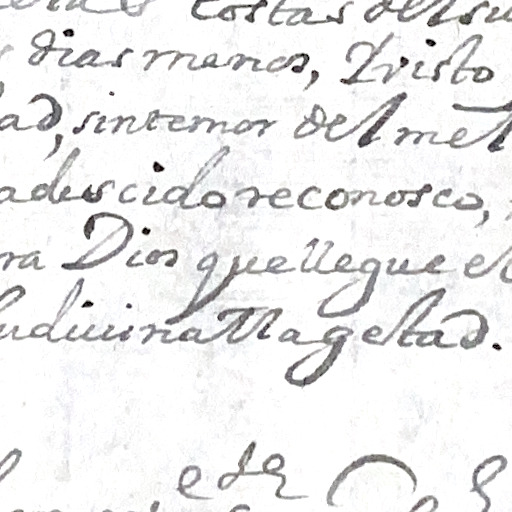 costas del su
dias menos, Xristo
ad, sin temor del met
adescido reconosco,
ra Dios que llegue el
su divina Magestad.